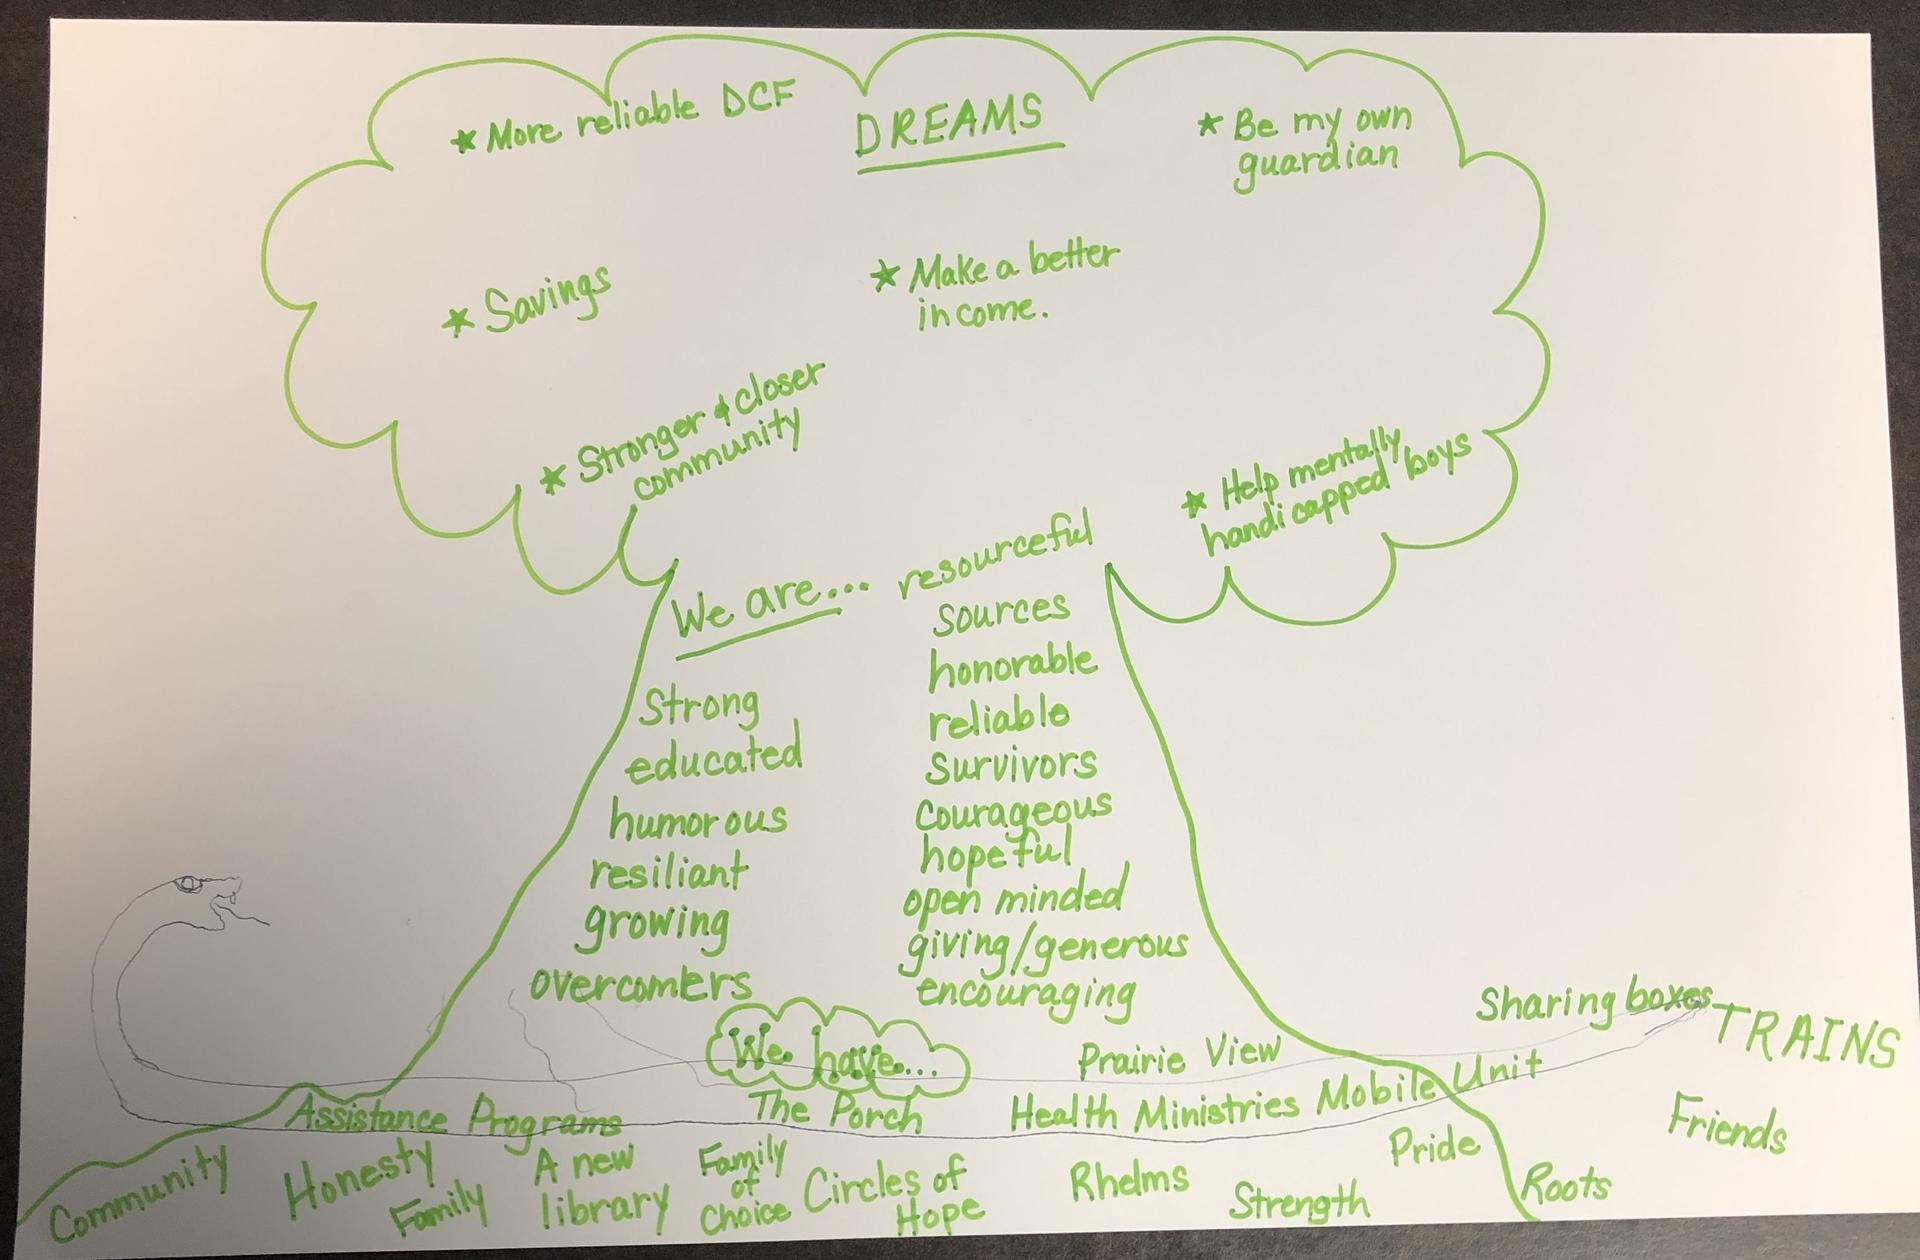 DREAMS
* More reliable DCF
* Be my own
guardian
* Savings
* Make a better
income.
* Stronger & closer
community
* Help mentally
handicapped boys
We are...
Strong
educated
humorous
resiliant
growing
overcomers
resourceful
sources
honorable
reliable
survivors
courageous
hopeful
open minded
giving/generous
encouraging
We have...
Sharing boxes
TRAINS
Prairie View
Assistance Programs
The Porch
Health Ministries Mobile Unit
Friends
Community
Honesty
Family
A new
library
Family
of
Choice
Circles of
Hope
Rhelms
Strength
Pride
Roots